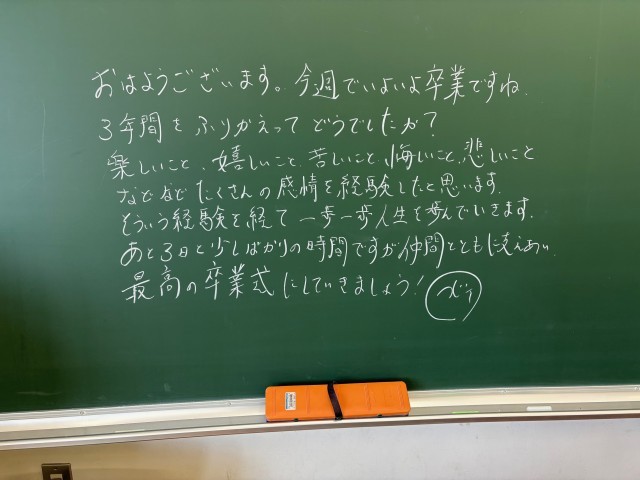 おはようございます。今週でいよいよ卒業ですね.
3年間をふりかえってどうでしたか?
楽しいこと、嬉しいこと、苦しいこと、悔しいこと、悲しいこと
などなどたくさんの感情を経験したと思います.
そういう経験を経て一歩一歩人生を歩んでいきます.
あと3日と少しばかりの時間ですが仲間とともに笑えあい、
最高の卒業式にしていきましょう!